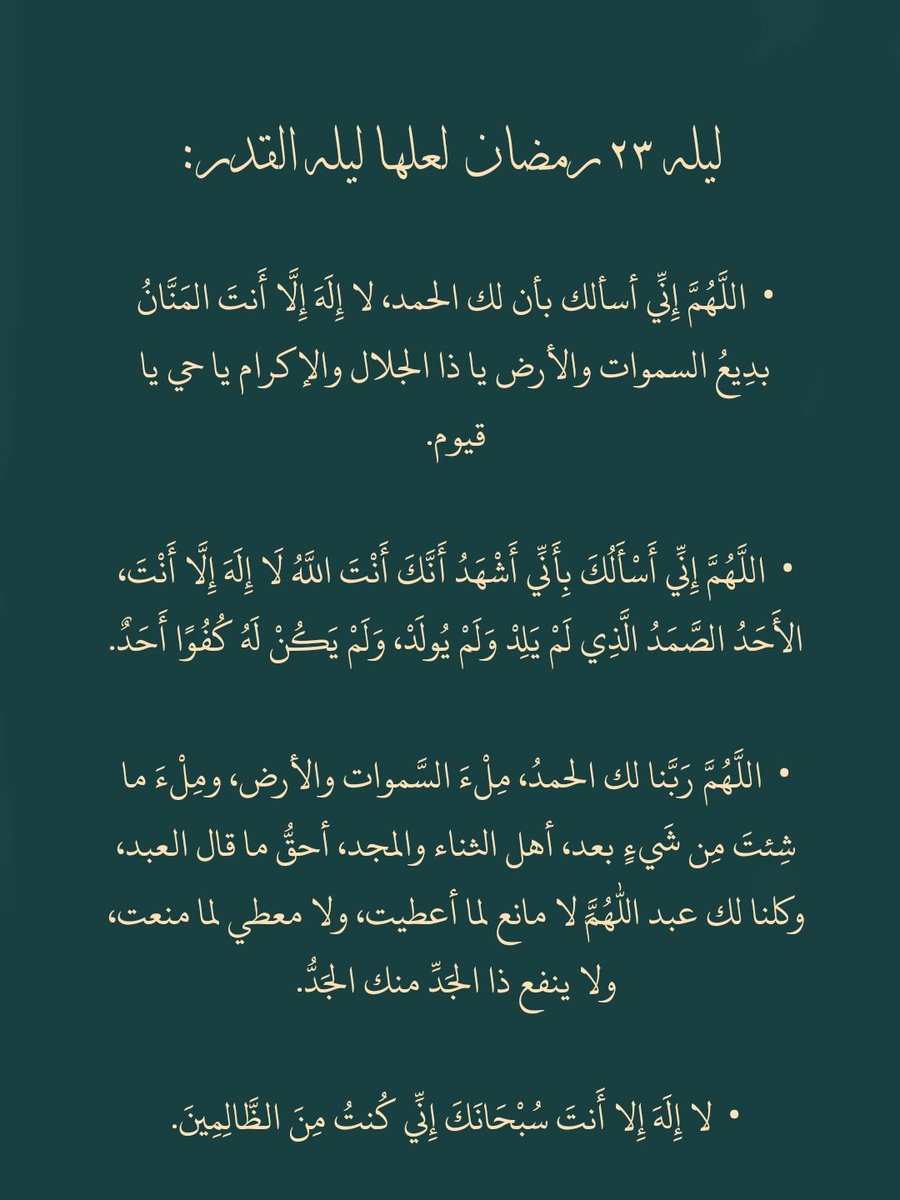 ليله ٢٣ رمضان لعلها ليله القدر:
• اللَّهُمَّ إِنِّي أسألك بأن لك الحمد، لا إِلَهَ إِلَّا أَنتَ المَنَّانُ
بدِيعُ السموات والأرض يا ذا الجلال والإكرام يا حي يا
قيوم.
• اللَّهُمَّ إِنِّي أَسْأَلُكَ بِأَنِّي أَشْهَدُ أَنَّكَ أَنْتَ اللَّهُ لَا إِلَهَ إِلَّا أَنْتَ،
الأَحَدُ الصَّمَدُ الَّذِي لَمْ يَلِدْ وَلَمْ يُولَدْ، وَلَمْ يَكُنْ لَهُ كُفُوًا أَحَدٌ.
• اللَّهُمَّ رَبَّنا لك الحمدُ، مِلْءَ السَّموات والأرض، ومِلْءَ ما
شِئتَ مِن شَيءٍ بعد، أهل الثناء والمجد، أحقُّ ما قال العبد،
وكلنا لك عبد اللهُمَّ لا مانع لما أعطيت، ولا معطي لما منعت،
ولا ينفع ذا الجَدِّ منك الجَدُّ.
• لا إِلَهَ إِلا أَنتَ سُبْحَانَكَ إِنِّي كُنتُ مِنَ الظَّالِمِينَ.